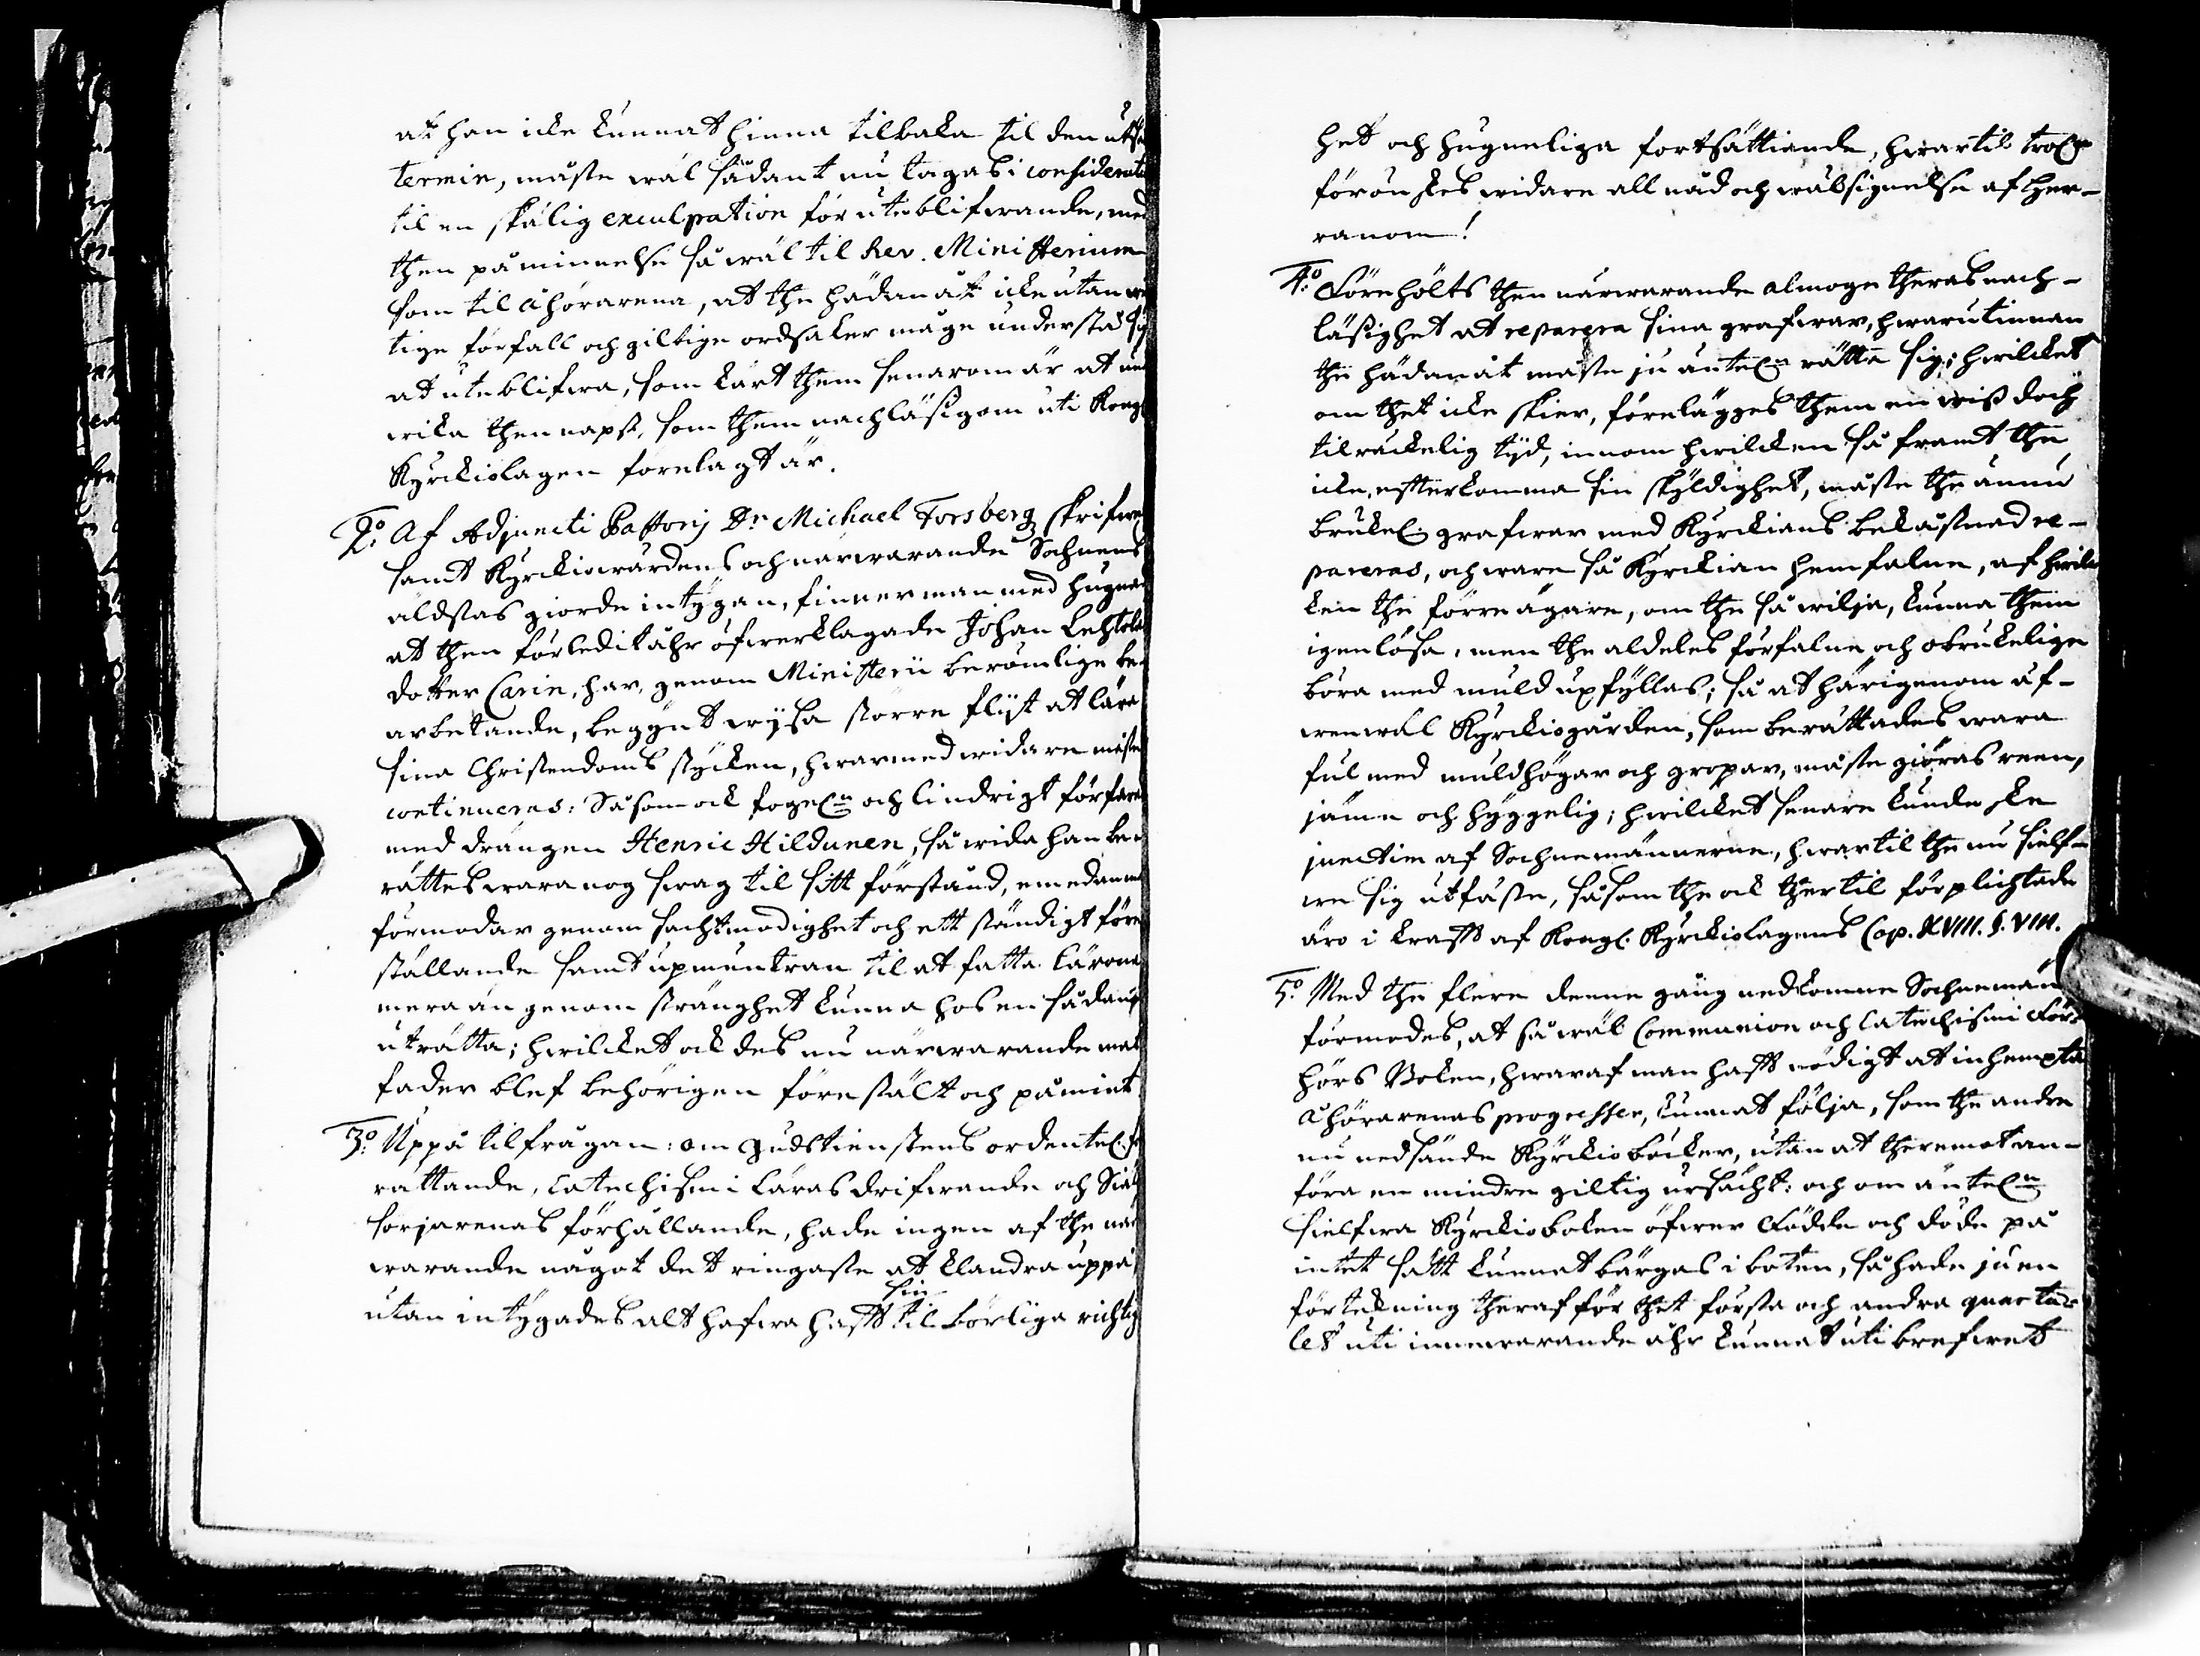 at han icke kunnat hinna tilbaka til den utsa
termin, måste wäl sådant nu tagas i considerati
til en skälig exculpation för uteblifwande, med
then påminnelse så wäl til Rev. Ministerium
som til åhörarena, at the hädan åt icke utan wi
tige förfall och giltige ordsaker måge understå si
at uteblifwa, som kärt them senarom är at un
wika then näpst, som them nachläßigom uti Kongl
Kyrckiolagen förelagt är.
2:o Af Adjuncti Pastoris Dn Michael Forsberg skrifwe
samt Kyrckiowärdens och närwarande Sochnens
äldstas giorde intygan, finner man med hugnad
at then förledit åhr öfwerklagade Johan Lehtola
dotter Carin, har, genom Ministerii berömlige be
arbetande, begynt wysa större flijt at lära
sina Christendoms stycken, hwarmed widare måste
continueras: Såsom ock fogel:n och lindrigt förfara
med drängen Henric Hildunen, så wida han be
rättes wara nog swag til sitt förstånd, emedan m
förmodar genom sachtmodighet och ett ständigt före
ställande samt upmuntran til at fatta lärone
mera än genom stränghet kunna hos en sådan
uträtta; hwilcket ock des nu närwarande mat
fader blef behörigen förestält och påmint
3:o Uppå tilfrågan: om gudstienstens ordentel. fö
rättande, Catechismi läras drifwande och Siäl
sörjarenas förhållande, hade ingen af the när
warande något det ringaste at klandra uppå,
utan intygades alt hafwa haft sin tilbörliga richtig
het och hugneliga fortsättiande, hwartil trol:n
förönskes widare all nåd och wälsignelse af Her-
ranom!
4:o Förehölts then närwarande almoge theras nach-
läßighet at reparera sina grafwar, hwarutinnan
the hädanåt måste ju äntel:n rätta sig; hwilcket
om thet icke skier, förelägges them en wiß doch
tilräckelig tijd, innom hwilcken så framt the
icke efterkomma sin skyldighet, måste the ännu
brukel: grafwar med Kyrckians bekåstnad re-
pareras, och ware så Kyrckian hemfalne, af hwil
ken the förre ägare, om the så wilja, kunna them
igenlösa, men the aldeles förfalne och obrukelige
böra med muld upfyllas; så at härigenom äf-
wenwäl Kyrckiogården, som berättades wara
ful med muldhögar och gropar, måste giöras reen,
jämn och hyggelig; hwilcket senare kunde ske
junctim af Sochnemännerne, hwartil the nu sielf-
we sig utfäste, såsom the ock thertil förplichtade
äro i kraft af Kongl. Kyrckiolagens Cap. XVIII. §. VIII.
5:o Med the flere denne gång nedkomne Sochnemän
förmodes, at så wäl Communion och Catechismi För-
hörs Boken, hwaraf man haft nödigt at inhempta
åhörarenas progresser, kunnat följa, som the andre
nu nedsände Kyrckioböcker, utan at theremot an-
föra en mindre giltig ursächt: och om äntel:n
sielfwa Kyrckioboken öfwer Födde och döde på
intet sätt kunnat bärgas i båten, så hade ju en
förtekning theraf för thet första och andra quarta-
let uti innewarande åhr kunnat uti brefwet